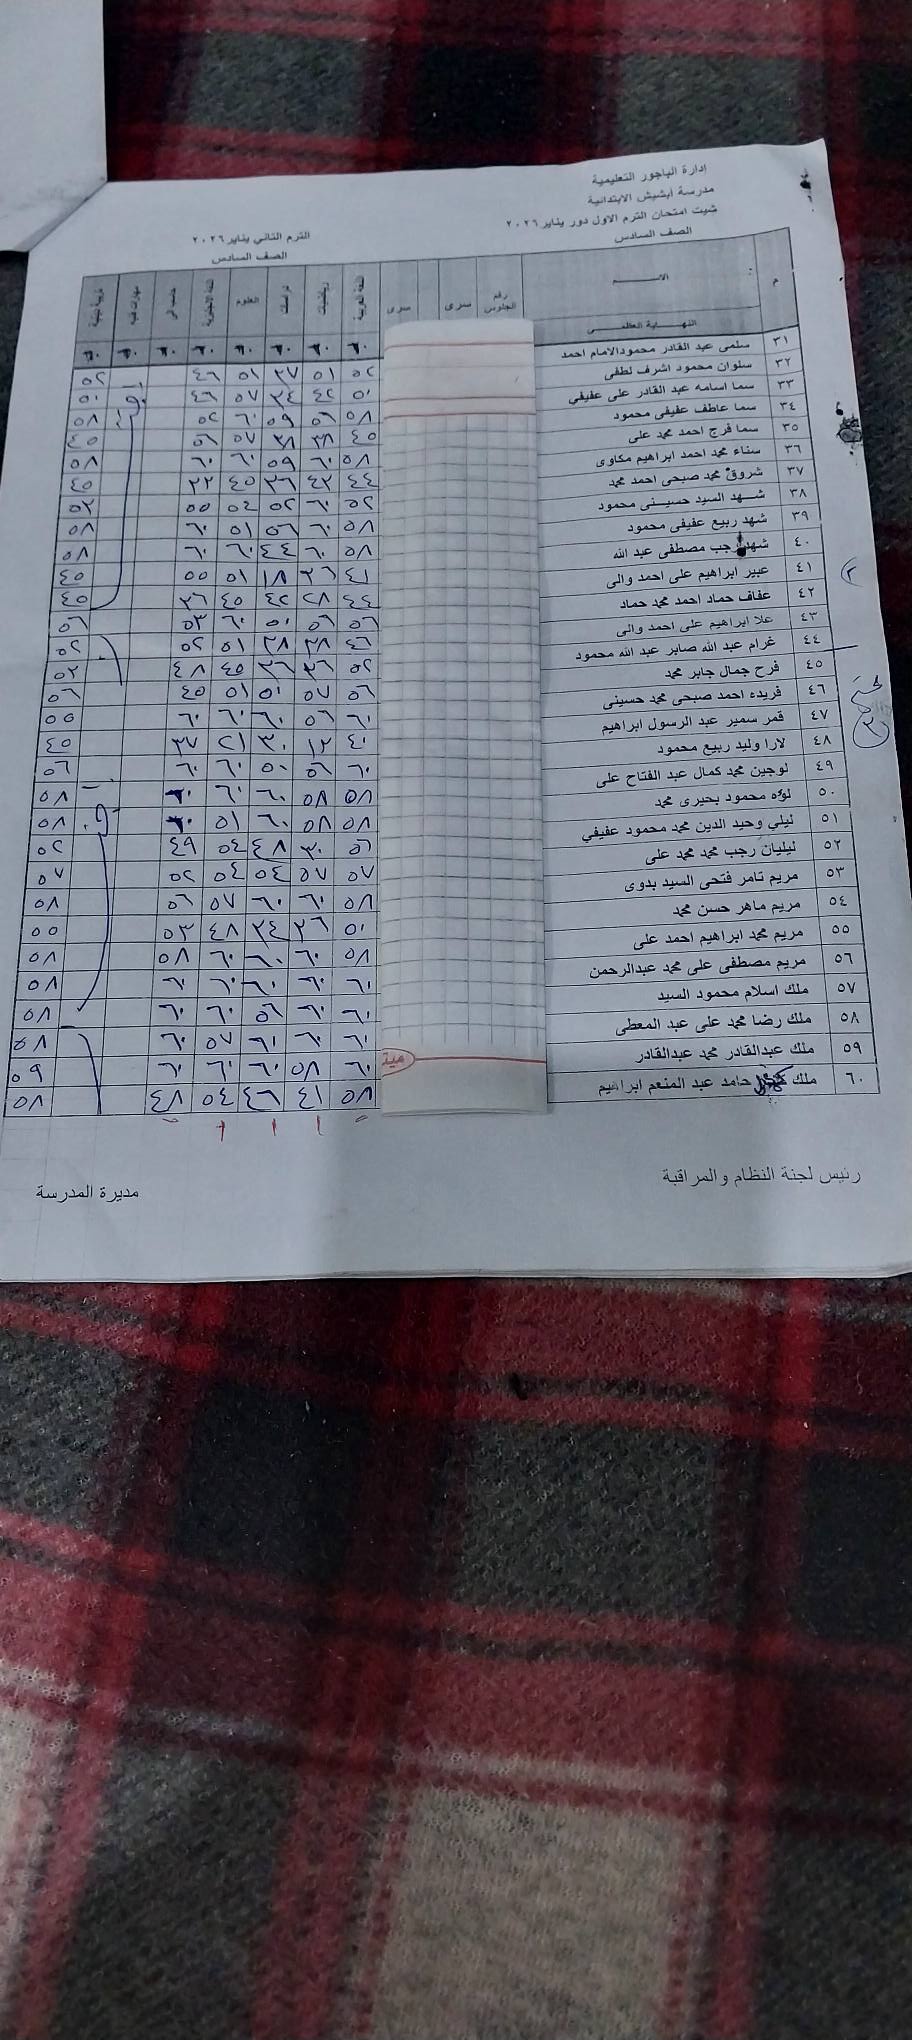 إدارة الباجور التعليمية
مدرسة أبشيش الابتدائية
شيت امتحان الترم الاول دور يناير ٢٠٢٦
الصف السادس
الترم الثاني يناير ٢٠٢٦
الصف السادس
م الاسم رقم الجلوس سرى سرى اللغة العربية رياضيات دراسات العلوم اللغة الانجليزية حاسب الى مهارات فنيه تربية دينية
النهاية العظمى ٦٠ ٦٠ ٦٠ ٦٠ ٦٠ ٦٠ ٦٠ ٦٠
٣١ سلمى عبد القادر محمود الامام احمد ٥٢ ٥١ ٣٧ ٥١ ٤٦ ٥٢
٣٢ سلوان محمود اشرف لطفى ٥٠ ٤٢ ٣٤ ٥٧ ٤٦ ٥٠
٣٣ سما اسامه عبد القادر على عفيفي ٥٨ ٥٦ ٥٩ ٦٠ ٥٢ ٥٨
٣٤ سما عاطف عفيفى محمود ٤٥ ٣٨ ٣٨ ٥٧ ٥٦ ٤٥
٣٥ سما فرج احمد محمد على ٥٨ ٦٠ ٥٩ ٦٠ ٦٠ ٥٨
٣٦ سناء محمد احمد ابراهيم مكاوى ٤٤ ٤٢ ٣٦ ٤٥ ٢٢ ٤٥
٣٧ شروق محمد صبحى احمد محمد ٥٢ ٦٠ ٥٢ ٥٤ ٥٥ ٥٢
٣٨ شهد السيد حسينى محمود ٥٨ ٦٠ ٥٦ ٥١ ٦٠ ٥٨
٣٩ شهد ربيع عفيفى محمود ٥٨ ٦٠ ٤٤ ٦٠ ٦٠ ٥٨
٤٠ شهد رجب مصطفى عبد الله ٤١ ٣٦ ١٨ ٥١ ٥٥ ٤٥
٤١ عبير ابراهيم على احمد والى ٤٤ ٢٨ ٤٢ ٤٥ ٣٦ ٤٥
٤٢ عفاف حماد احمد محمد حماد ٥٦ ٥٦ ٥٠ ٦٠ ٥٣ ٥٦
٤٣ علا ابراهيم على احمد والى ٤٦ ٣٨ ٢٨ ٥١ ٥٢ ٥٢
٤٤ غرام عبد الله صابر عبد الله محمود ٥٢ ٣٦ ٣٦ ٤٥ ٤٨ ٥٢
٤٥ فرح جمال جابر محمد ٥٦ ٥٧ ٥٠ ٥١ ٤٥ ٥٦
٤٦ فريده احمد صبحى محمد حسينى ٦٠ ٥٦ ٦٠ ٦٠ ٦٠ ٥٥
٤٧ قمر سمير عبد الرسول ابراهيم ٤٠ ١٢ ٣٠ ٢١ ٣٧ ٤٥
٤٨ لارا وليد ربيع محمود ٦٠ ٥٦ ٥٠ ٦٠ ٦٠ ٥٦
٤٩ لوجين محمد كمال عبد الفتاح على ٥٨ ٥٨ ٦٠ ٦٠ ٦٠ ٥٨
٥٠ لؤه محمود بحيرى محمد ٥٨ ٥٨ ٦٠ ٥١ ٦٠ ٥٨
٥١ ليلي وحيد الدين محمد محمود عفيفي ٥٦ ٣٠ ٤٨ ٥٤ ٤٩ ٥٢
٥٢ ليليان رجب محمد محمد على ٥٧ ٥٧ ٥٤ ٥٤ ٥٢ ٥٧
٥٣ مريم تامر فتحى السيد بدوى ٥٨ ٦٠ ٦٠ ٥٧ ٥٦ ٥٨
٥٤ مريم ماهر حسن محمد ٥٠ ٢٦ ٣٤ ٤٨ ٥٣ ٥٥
٥٥ مريم محمد ابراهيم احمد على ٥٨ ٦٠ ٦٠ ٦٠ ٥٨ ٥٨
٥٦ مريم مصطفى على محمد عبدالرحمن ٦٠ ٦٠ ٦٠ ٦٠ ٦٠ ٥٨
٥٧ ملك اسلام محمود السيد ٦٠ ٦٠ ٥٦ ٦٠ ٦٠ ٥٨
٥٨ ملك رضا محمد على عبد المعطى ٦٠ ٦٠ ٦٠ ٥٧ ٦٠ ٥٨
٥٩ ملك عبدالقادر محمد عبدالقادر ٦٠ ٥٨ ٦٠ ٦٠ ٦٠ ٥٩
٦٠ ملك حامد عبد المنعم ابراهيم ٥٨ ٤١ ٤٦ ٥٤ ٤٨ ٥٨
مية
رئيس لجنة النظام والمراقبة
مديرة المدرسة